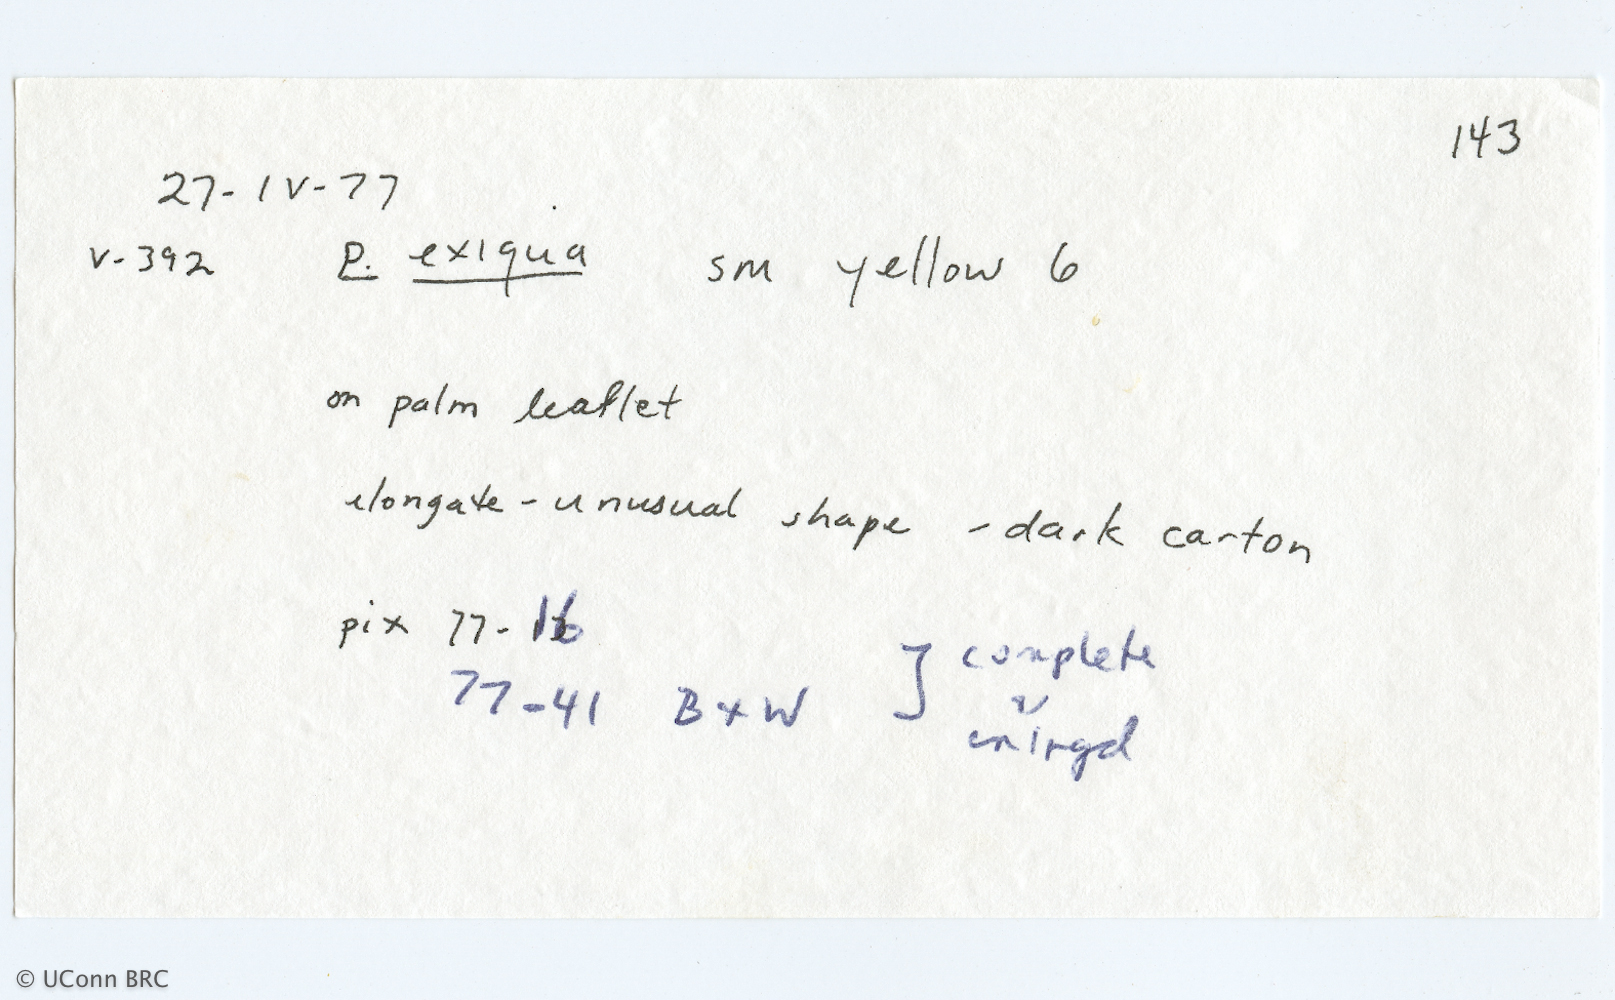 143
27-IV-77
V-392 P. exiqua sm yellow 6
on palm leaflet
elongate - unusual shape - dark carton
pix 77-16
77-41 B+W } complete
enlrgd
© UConn BRC